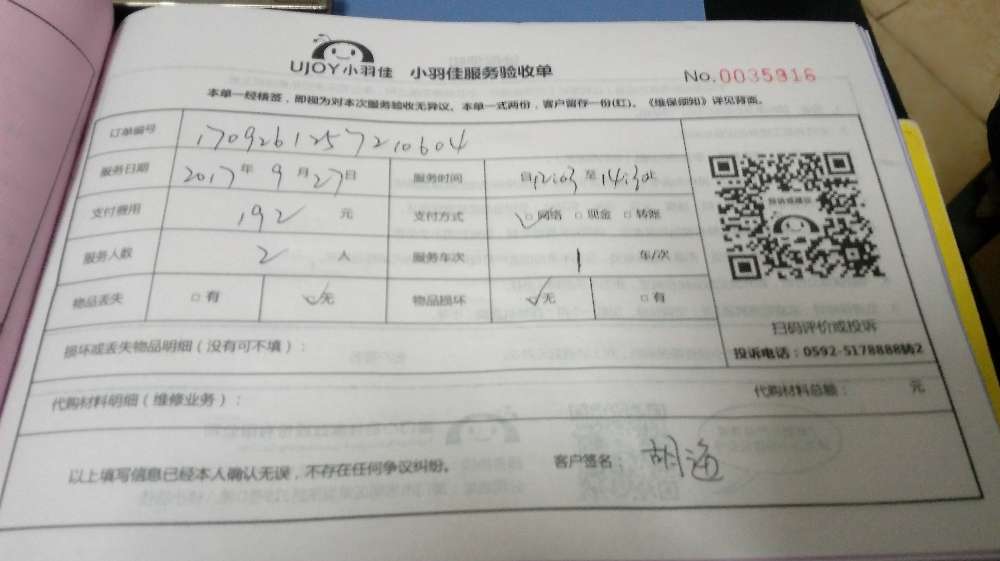 UJOY小羽佳 小羽佳服务验收单 No.0035916
本单一经核签，即视为对本次服务验收无异议。本单一式两份，客户留存一份(红)。《维保须知》详见背面。
订单编号 1709261257210604
服务日期 2017年9月27日 服务时间 自12:03至14:30止
支付费用 192 元 支付方式 ✓□网络 □现金 □转账
服务人数 2 人 服务车次 1 车/次
物品丢失 □有 ✓无 物品损坏 ✓无 □有
投诉或建议
扫码评价或投诉
损坏或丢失物品明细（没有可不填）： 投诉电话：0592-5178888转2
代购材料明细（维修业务）： 代购材料总额： 元
以上填写信息已经本人确认无误，不存在任何争议纠纷。 客户签名：胡